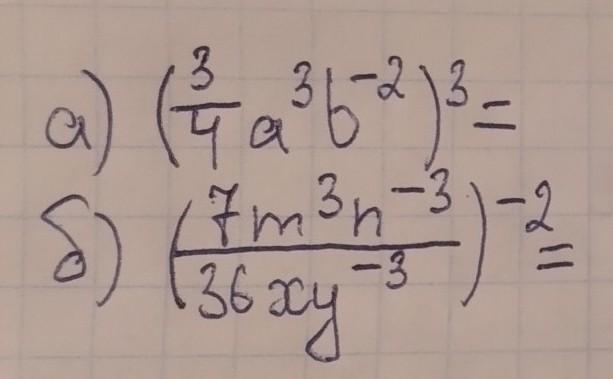 а) (3/4 a³b⁻²)³=
б) (7m³n⁻³/36xy⁻³)⁻²=